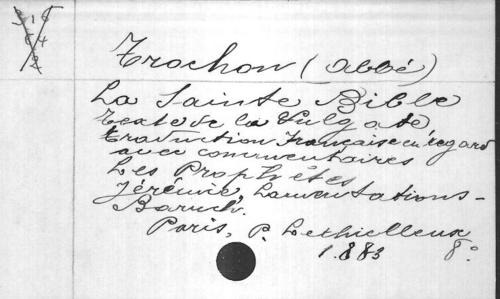 Trochon (abbé)
La Sainte Bible
Texte de la Vulgate
traduction française en regard
avec commentaires
Les Prophètes
Jérémie, Lamentations-
Baruch.
Paris, P. Lethielleux
1883 8°